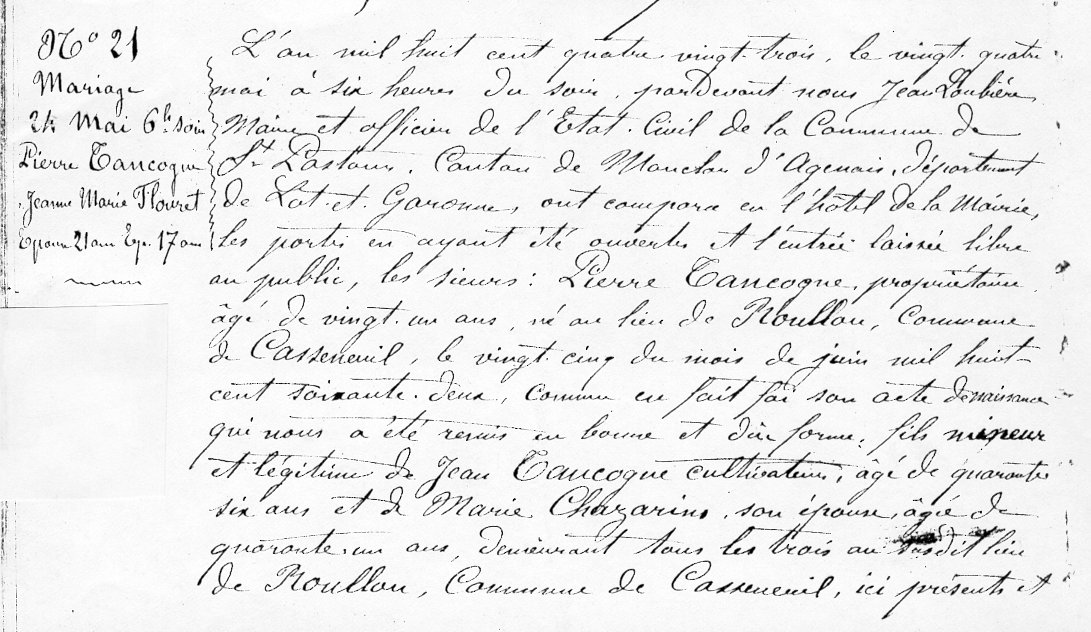 N° 21
Mariage
24 Mai 6h soir
Pierre Tancogne
Jeanne Marie Flouret
Epoux 21 ans Ep. 17 ans
L'an mil huit cent quatre vingt-trois, le vingt-quatre
mai à six heures du soir, pardevant nous Jean Loubière,
Maire et officier de l'Etat-Civil de la Commune de
St Pastour, Canton de Monclar d'Agenais, département
de Lot-et-Garonne, ont comparu en l'hôtel de la Mairie,
les portes en ayant été ouvertes et l'entrée laissée libre
au public, les sieurs : Pierre Tancogne, propriétaire,
âgé de vingt-un ans, né au lieu de Roullou, Commune
de Casseneuil, le vingt-cinq du mois de juin mil huit-
cent soixante-deux, comme en fait foi son acte de naissance
qui nous a été remis en bonne et due forme, fils mineur
et légitime de Jean Tancogne cultivateur, âgé de quarante
six ans et de Marie Chazarin, son épouse, âgée de
quarante-un ans, demeurant tous les trois au susdit lieu
de Roullou, Commune de Casseneuil, ici présents et